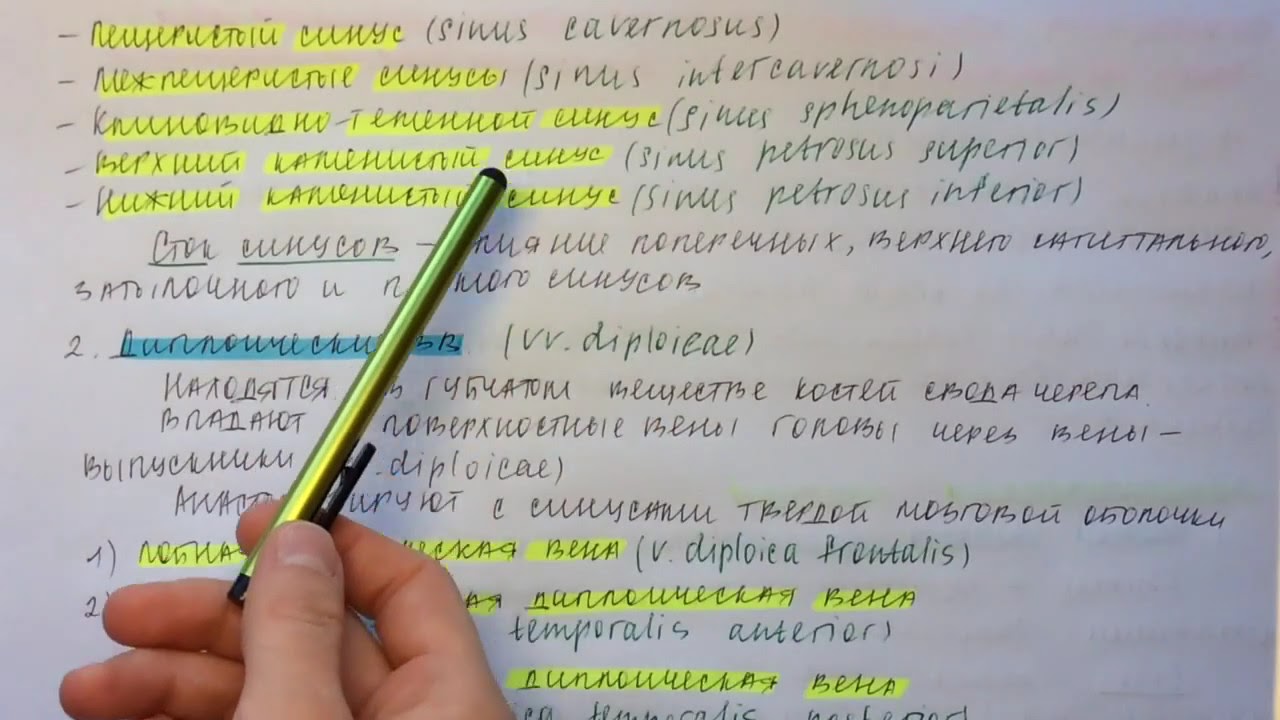 - Пещеристый синус (sinus cavernosus)
- Межпещеристые синусы (sinus intercavernosi)
- Клиновидно-теменной синус (sinus sphenoparietalis)
- Верхний каменистый синус (sinus petrosus superior)
- Нижний каменистый синус (sinus petrosus inferior)
Сток синусов - поперечных, верхнего сагиттального,
затылочного и синусов
2. Диплоические вв. (vv. diploicae)
Находятся в губчатом веществе костей свода черепа.
Впадают поверхностные вены головы через вены-
выпускники diploicae)
с синусами твердой мозговой оболочки
1) вена (v. diploica frontalis)
2) диплоическая вена
temporalis anterior)
диплоическая вена
temporalis posterior)